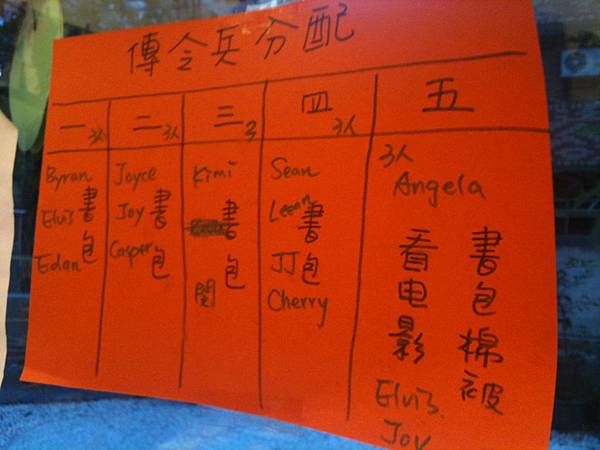 傳令兵分配
一 3人
二 3人
三 3
四 3人
五
Byran
Elvis
Edan
書包
Joyce
Joy
Casper
書包
Kimi
書包
閔
Sean
Leean
JJ
Cherry
書包
3人
Angela
看电影
書包棉被
Elvis
Joy